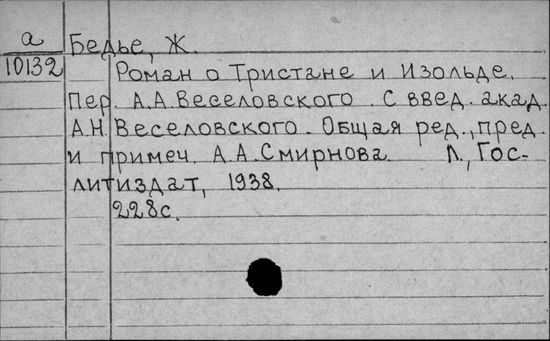 а
10132
Бедье, Ж.
Роман о Тристане и Изольде.
Пер. А.А.Веселовского. С введ. акад.
А.Н.Веселовского. Общая ред., пред.
и примеч. А.А.Смирнова. Л., Гос-
литиздат, 1938.
228с.